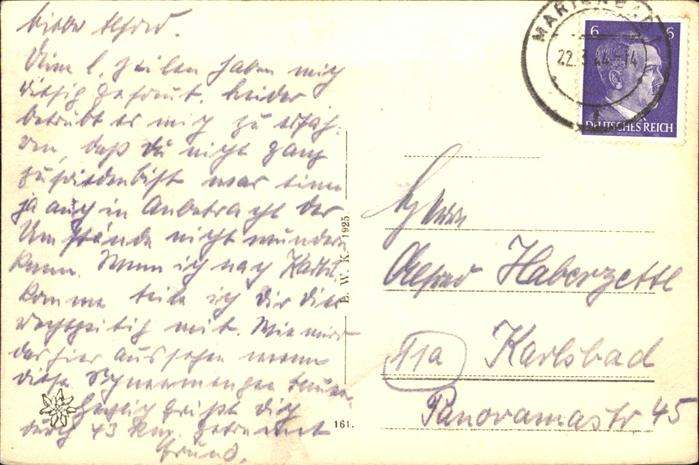 Lieber Alfred.
Deine l. Zeilen haben mich
riesig gefreut. Leider
betrübt es mich zu erfah-
ren, daß du nicht ganz
zufrieden bist was einen
ja auch in Anbetracht der
Umstände nicht wundern
kann. Wenn ich nach Karls
komme teile ich dir dies
rechtzeitig mit. Wie wird
das hier aussehen wenn
diese Schneemengen tauen.
Herzlich grüßt dich
durch 43 Km. getrennt
Freund.
MARIENBAD
22.3.44
6 6
DEUTSCHES REICH
E. W. K. 1925
161.
Herrn
Alfred Haberzettl
11a Karlsbad
Panoramastr 45